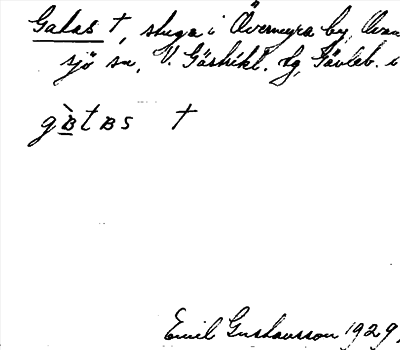 Gatas †, stuga i Övermyra by, Ovan
sjö sn, V. Gästrikl. hg, Gävleb. 
gʙ̀tʙs †
Emil Gustavsson 1929,